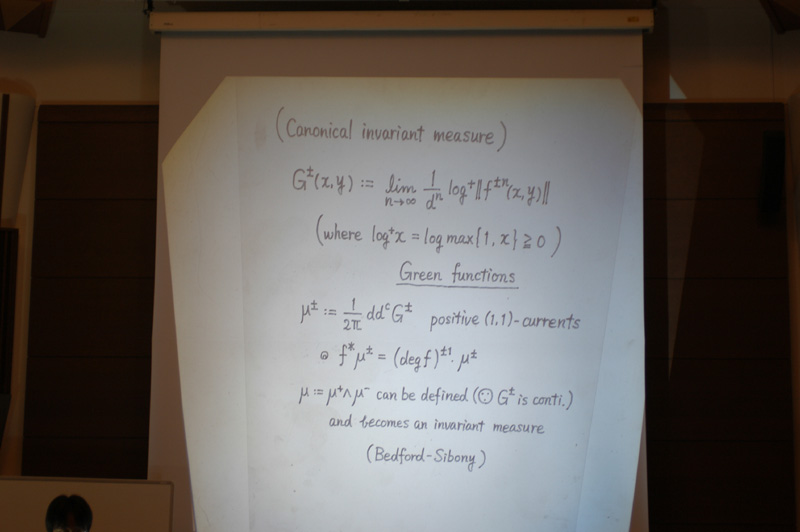 (Canonical invariant measure)
G±(x,y) := lim n→∞ 1/dⁿ log⁺‖f±ⁿ(x,y)‖
(where log⁺x = log max{1, x} ≧ 0)
Green functions
μ± := 1/2π ddᶜG± positive (1,1)-currents
◎ f*μ± = (deg f)±¹·μ±
μ := μ⁺∧μ⁻ can be defined (☺ G± is conti.)
and becomes an invariant measure
(Bedford-Sibony)